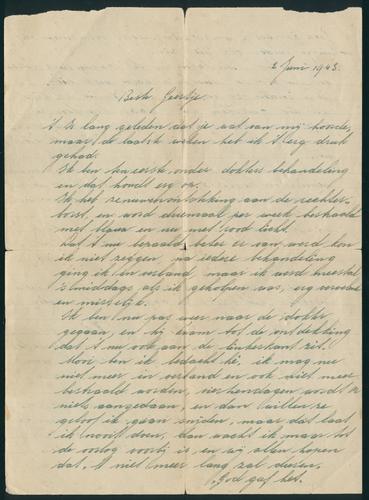 2 Juni 1943.
Beste Geertje
't Is lang geleden dat je wat van mij hoorde,
maar de laatste weken heb ik 't erg druk
gehad.
Ik ben ten eerste onder dokters behandeling
en dat houdt erg op.
Ik heb zenuwontstekking aan de rechter-
borst, en word driemaal per week bestraald
met blauw en nu met rood licht.
Dat 't nu bepaald beter er van word kon
ik niet zeggen, na iedere behandeling
ging ik in verband, maar ik werd meestal
's middags, als ik geholpen was, erg
en misselijk.
Ik ben nu pas weer naar de dokter
gegaan, en hij kwam tot de ontdekking
dat 't nu ook aan de linkerkant zit.
Mooi ben ik bedacht hè, ik mag nu
niet meer in verband en ook niet meer
bestraald worden, veertiendagen wordt er
niets aangedaan, en dan willen ze
geloof ik gaan snijden, maar dat laat
ik nooit doen, dan wacht ik maar tot
de oorlog voorbij is en wij allen hopen
dat 't niet meer lang zal duren.
God gaf het.